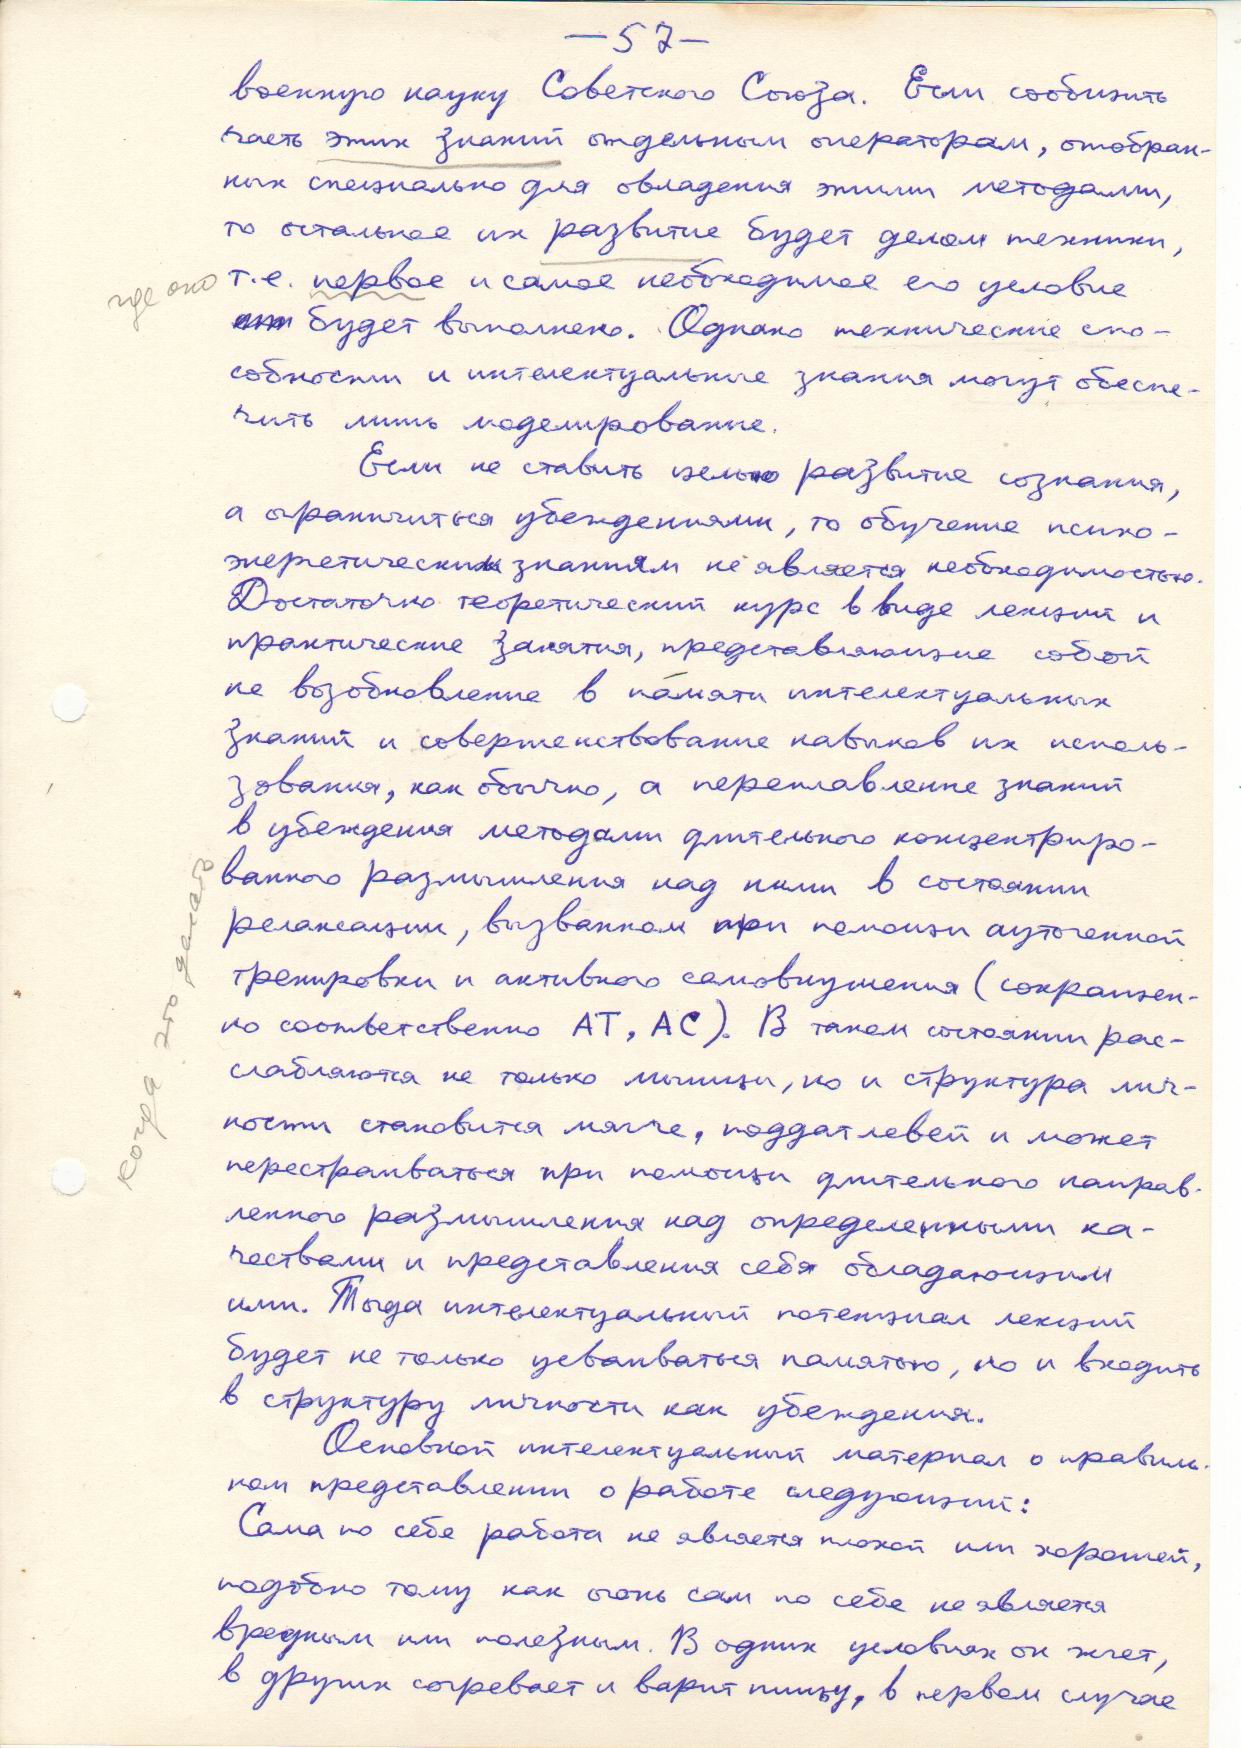 — 57 —
военную науку Советского Союза. Если сообщить
часть этих знаний отдельным операторам, отобран-
ных специально для овладения этими методами,
то остальное их развитие будет делом техники,
где оно
т.е. первое и самое необходимое его условие
будет выполнено. Однако технические спо-
собности и интелектуальные знания могут обеспе-
чить лишь моделирование.
Если не ставить целью развитие сознания,
а ограничиться убеждениями, то обучение психо-
энергетическим знаниям не является необходимостью.
Достаточно теоретический курс в виде лекций и
практические занятия, представляющие собой
не возобновление в памяти интелектуальных
знаний и совершенствование навыков их исполь-
зования, как обычно, а переплавление знаний
в убеждения методами длительного концентриро-
ванного размышления над ними в состоянии
релаксации, вызванном при помощи аутогенной
тренировки и активного самовнушения (сокращен-
но соответственно АТ, АС). В таком состоянии рас-
слабляются не только мышцы, но и структура лич-
ности становится мягче, поддатлевей и может
перестраиваться при помощи длительного направ-
ленного размышления над определенными ка-
чествами и представления себя обладающим
ими. Тогда интелектуальный потенциал лекций
будет не только усваиваться памятью, но и входить
в структуру личности как убеждения.
когда это делать
Основной интелектуальный материал о правиль-
ном представлении о работе следующий:
Сама по себе работа не является плохой или хорошей,
подобно тому как огонь сам по себе не является
вредным или полезным. В одних условиях он жжет,
в других согревает и варит пищу, в первом случае